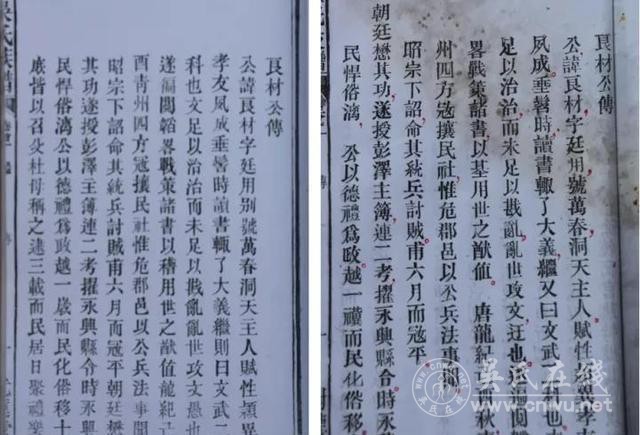 吳氏族譜
良材公傳
公諱良材字廷用別號萬春洞天主人賦性穎異
孝友夙成垂髫時讀書輒了大義繼則曰文武二
科也文足以治治而未足以戡亂亂世攻文愚也
遂徧閱韜畧戰策諸書以穡用世之猷值龍紀己
酉青州四方冦攘民社惟危郡邑以公兵法事聞
昭宗下詔命其統兵討賊甫六月而冦平朝廷懋
其功遂授彭澤主簿連二考擢永興縣令時永
民悍俗漓公以德禮爲政越一歲而民化俗移十
皆以召父杜母稱之逮三載而民居日聚禮樂
良材公傳
公諱良材字廷用號萬春洞天主人賦性孝
夙成垂髫時讀書輒了大義繼又曰文武也
足以治治而未足以戡亂亂世攻文迂也閱
畧戰策諸書以基用世之猷值 唐龍紀秋
州四方冦攘民社惟危郡邑以公兵法事聞
昭宗下詔命其統兵討賊甫六月而冦平
朝廷懋其功遂授彭澤主簿連二考擢永興縣令時永
民悍俗漓 公以德禮爲政越一禩而民化俗移
吴氏在线
www.cnwu.net